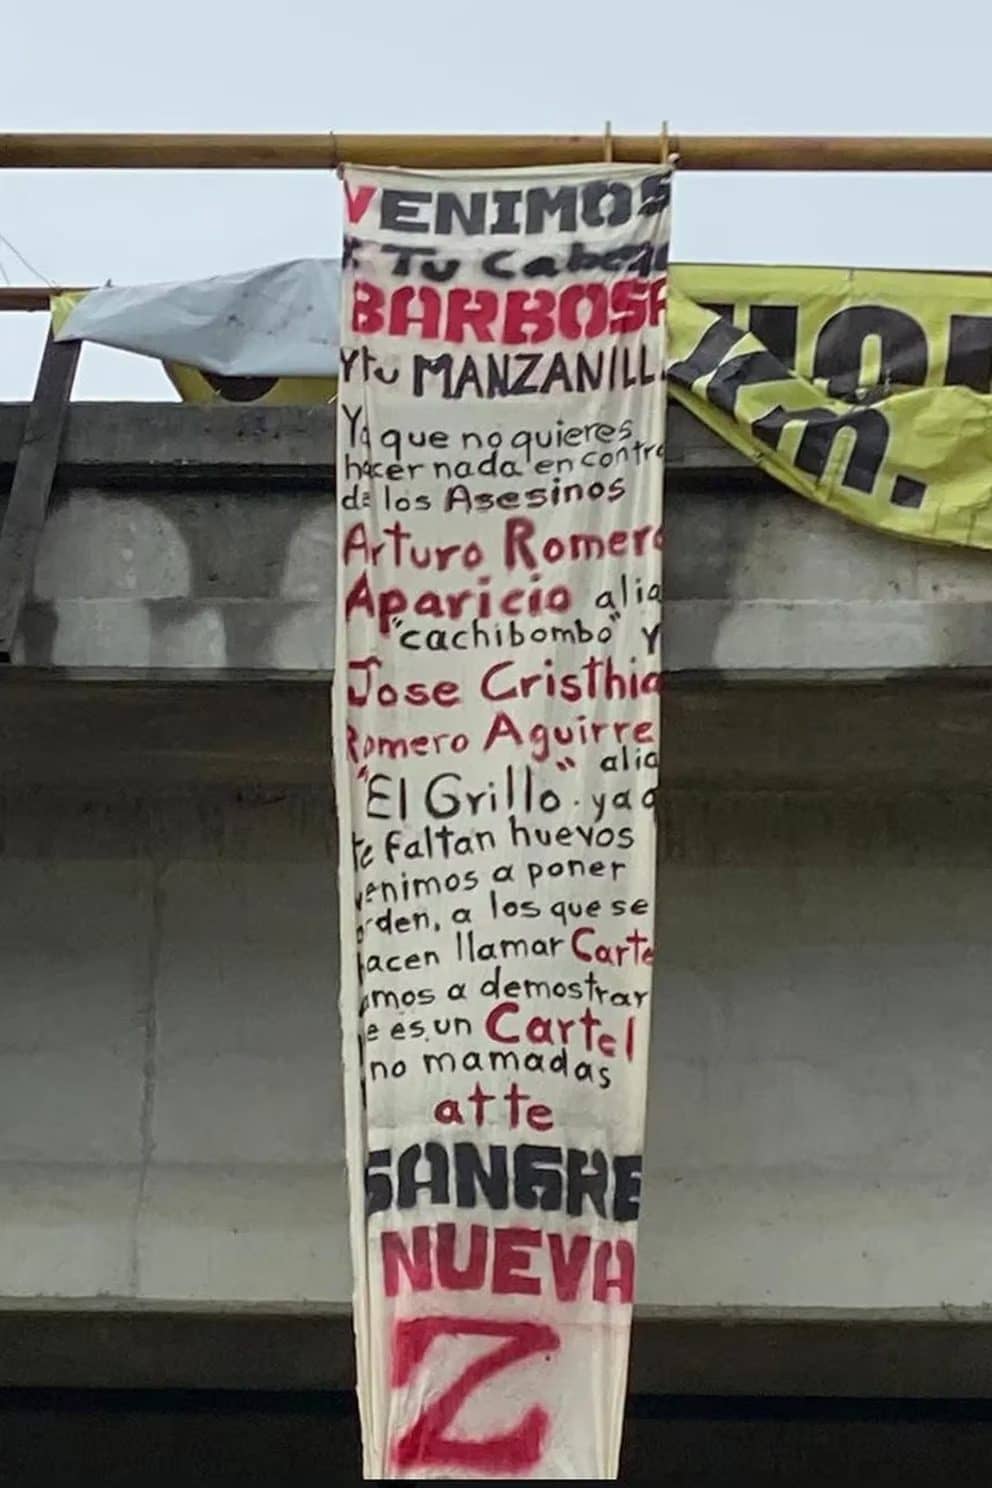 VENIMOS
x Tu Cabeza
BARBOSA
Y tu MANZANILL
Ya que no quieres
hacer nada en contra
de los Asesinos
Arturo Romero
Aparicio alia
"cachibombo" Y
Jose Cristhia
Romero Aguirre
alia
"El Grillo" . ya q
te faltan huevos
venimos a poner
orden, a los que se
acen llamar Carte
amos a demostrar
e es un Cartel
no mamadas
atte
SANGRE
NUEVA
Z
m.